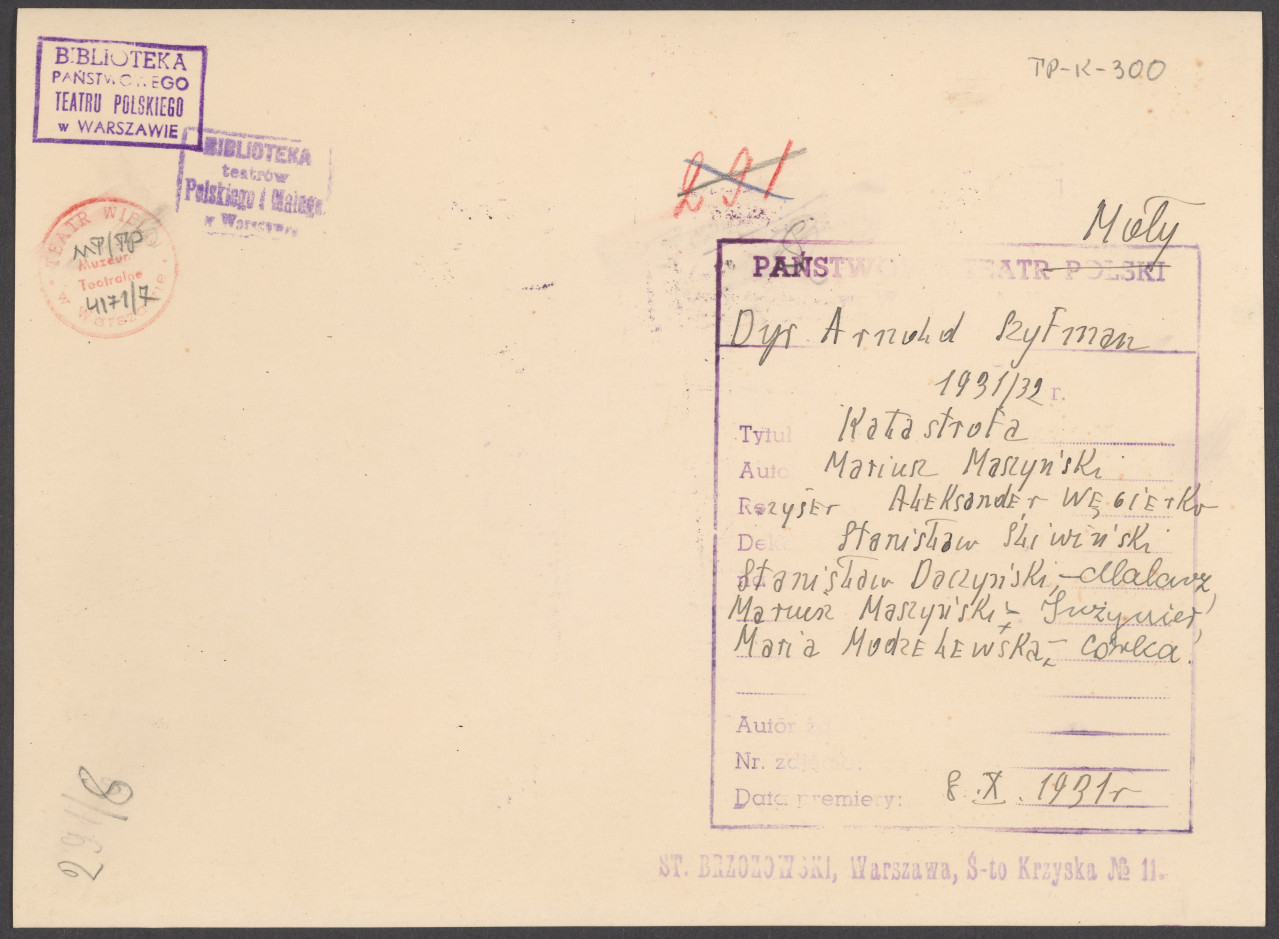 BIBLIOTEKA
PAŃSTWOWEGO
TEATRU POLSKIEGO
w WARSZAWIE
TP-K-300
BIBLIOTEKA
teatrów
Polskiego i Małego
w Warszawie
291
TEATR WIELKI
MT/TP
Muzeum
Teatralne
4171/7
w Warszawie
Mały
PAŃSTWOWY TEATR POLSKI
Dyr Arnold Szyfman
1931/32 r.
Tytuł Katastrofa
Autor Mariusz Maszyński
Reżyser Aleksander Węgierko
Dek Stanisław Śliwiński
Stanisław Daczyński, - Malarz,
Mariusz Maszyński - Inżynier,
Maria Modzelewska, - córka.
Autor
Nr. zdjęcia:
Data premiery: 8.X.1931r
291/8
ST. BRZOZOWSKI, Warszawa, Ś-to Krzyska № 11.